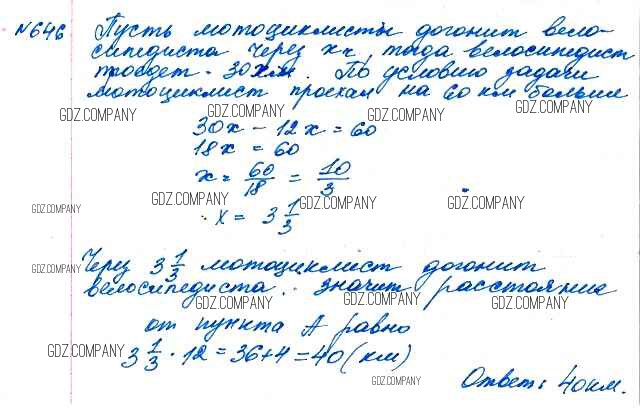 №646 Пусть мотоциклисты догонит вело-
сипедиста через x ч, тогда велосипедист
проедет - 30x км. По условию задачи
мотоциклист проехал на 60 км больше
GDZ.COMPANY GDZ.COMPANY GDZ.COMPANY GDZ.COMPANY
30x - 12x = 60
18x = 60
x = 60/18 = 10/3
GDZ.COMPANY GDZ.COMPANY GDZ.COMPANY GDZ.COMPANY
x = 3 1/3
Через 3 1/3 мотоциклист догонит
GDZ.COMPANY
велосипедиста. значит расстояние
GDZ.COMPANY GDZ.COMPANY GDZ.COMPANY
от пункта А равно
GDZ.COMPANY
3 1/3 · 12 = 36+4 = 40 (км)
GDZ.COMPANY
Ответ: 40 км.